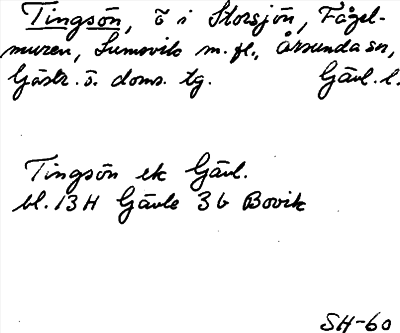 Tingsön, ö i Storsjön, Fågel-
muren, Lumsvik m. fl., Årsunda sn,
Gästr. ö. doms. tg. Gävl. l.
Tingsön ek Gävl.
bl. 13 H Gävle 3 b Bovik
SH-60